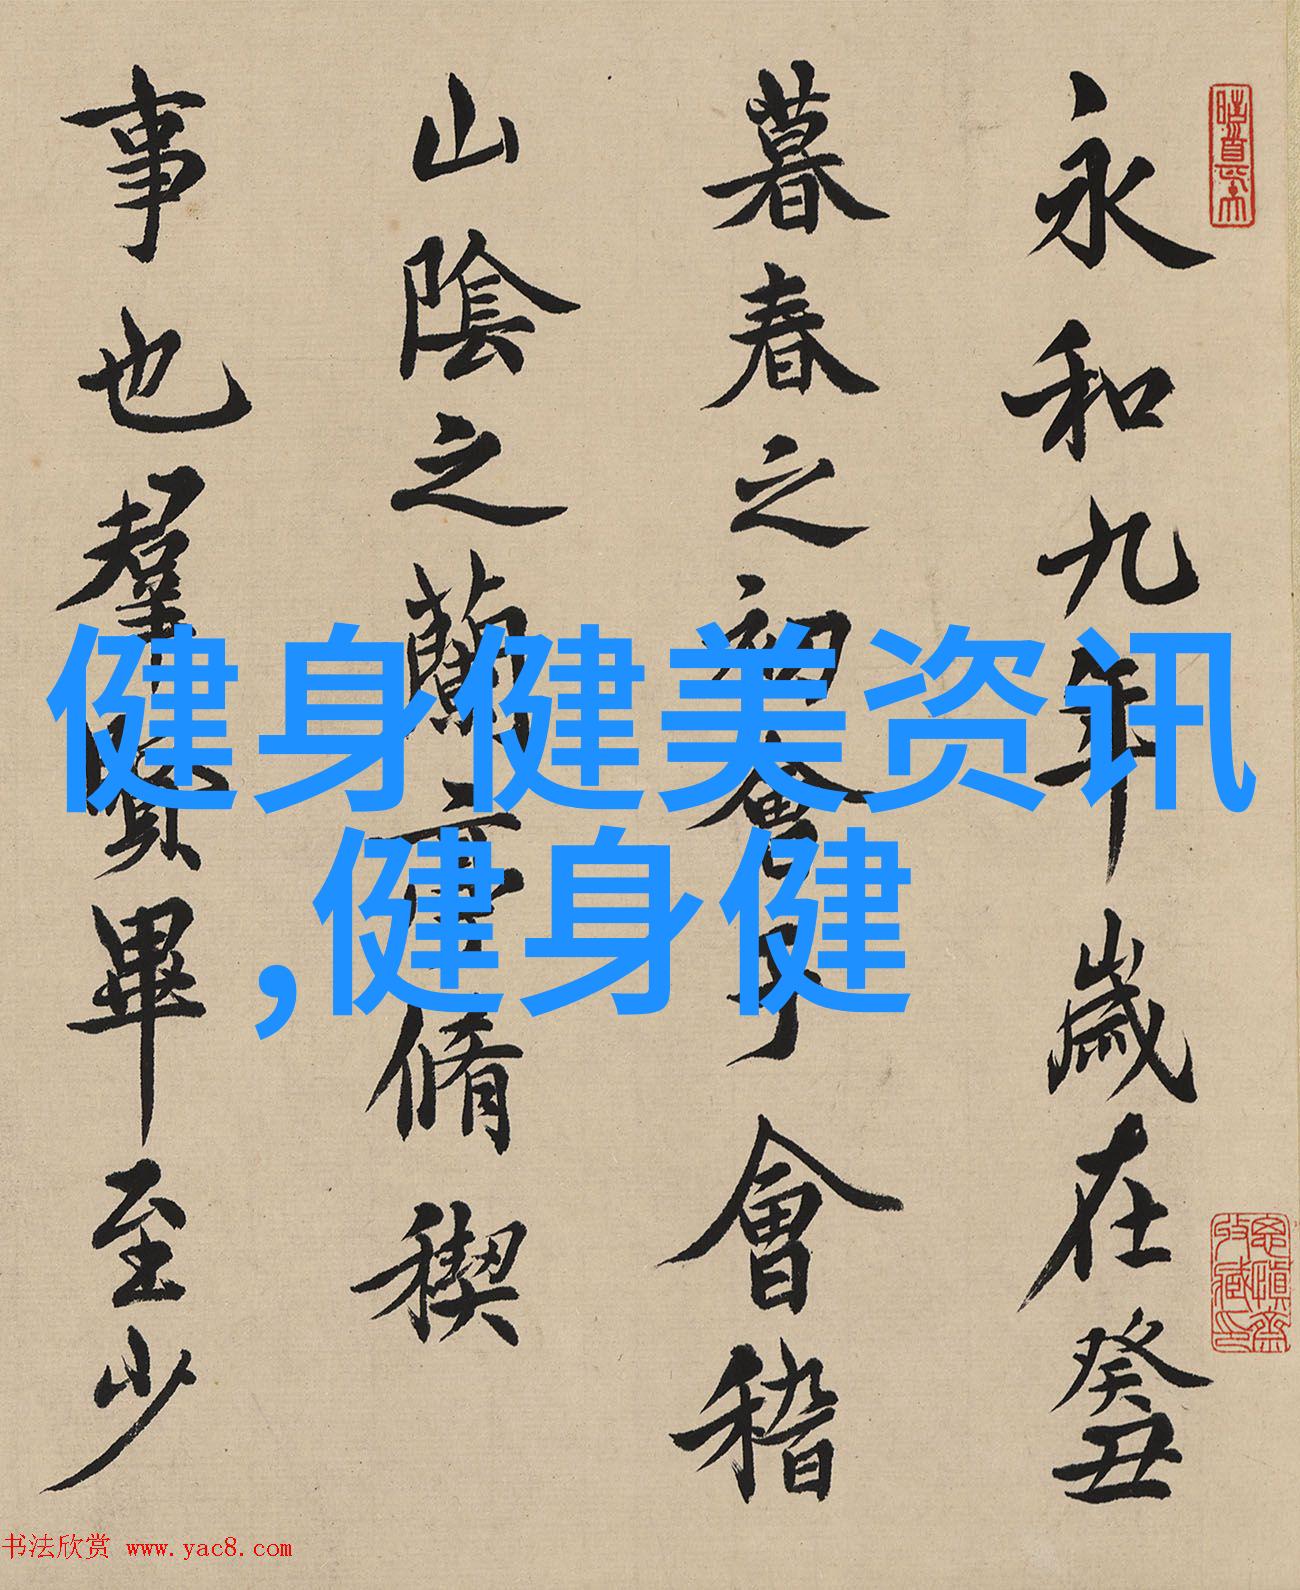 永和九年歲在癸丑
暮春之初會于會稽
山陰之蘭亭脩稧
事也羣賢畢至少
健身健美资讯
,健身健
书法欣赏 www.yac8.com